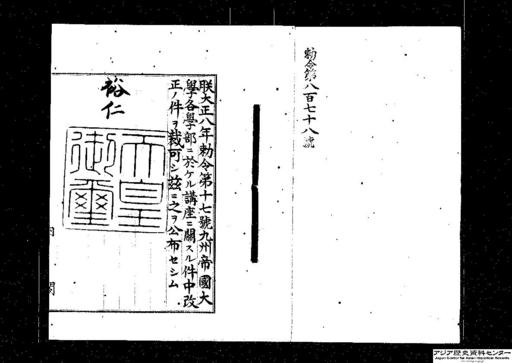 勅令第八百七十八號
朕大正八年勅令第十七號九州帝國大
學各學部ニ於ケル講座ニ關スル件中改
正ノ件ヲ裁可シ茲ニ之ヲ公布セシム
裕仁
天皇
御璽
内閣
アジア歴史資料センター
Japan Center for Asian Historical Records